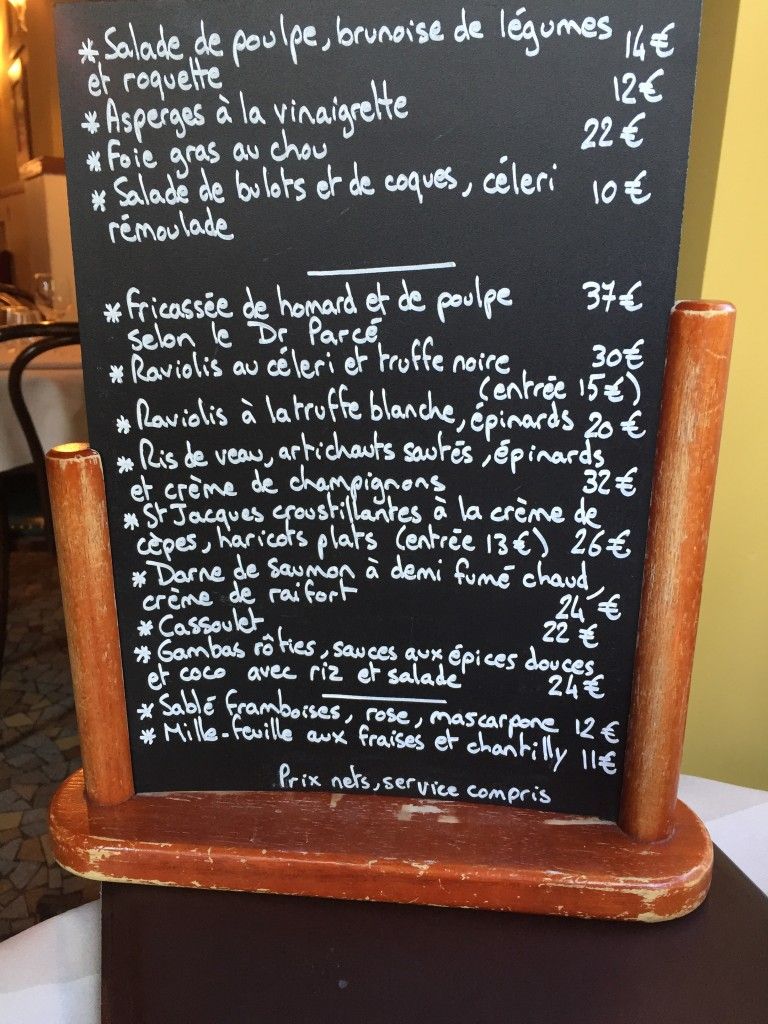 * Salade de poulpe, brunoise de légumes 14€
et roquette
* Asperges à la vinaigrette 12€
* Foie gras au chou 22€
* Salade de bulots et de coques, céleri 10€
rémoulade
* Fricassée de homard et de poulpe 37€
selon le Dr Parcé
* Raviolis au céleri et truffe noire 30€
(entrée 15€)
* Raviolis à la truffe blanche, épinards 20€
* Ris de veau, artichauts sautés, épinards
et crème de champignons 32€
* St Jacques croustillantes à la crème de
cèpes, haricots plats (entrée 13€) 26€
* Darne de saumon à demi fumé chaud,
crème de raifort 24€
* Cassoulet 22€
* Gambas rôties, sauces aux épices douces
et coco avec riz et salade 24€
* Sablé framboises, rose, mascarpone 12€
* Mille-feuille aux fraises et chantilly 11€
Prix nets, service compris